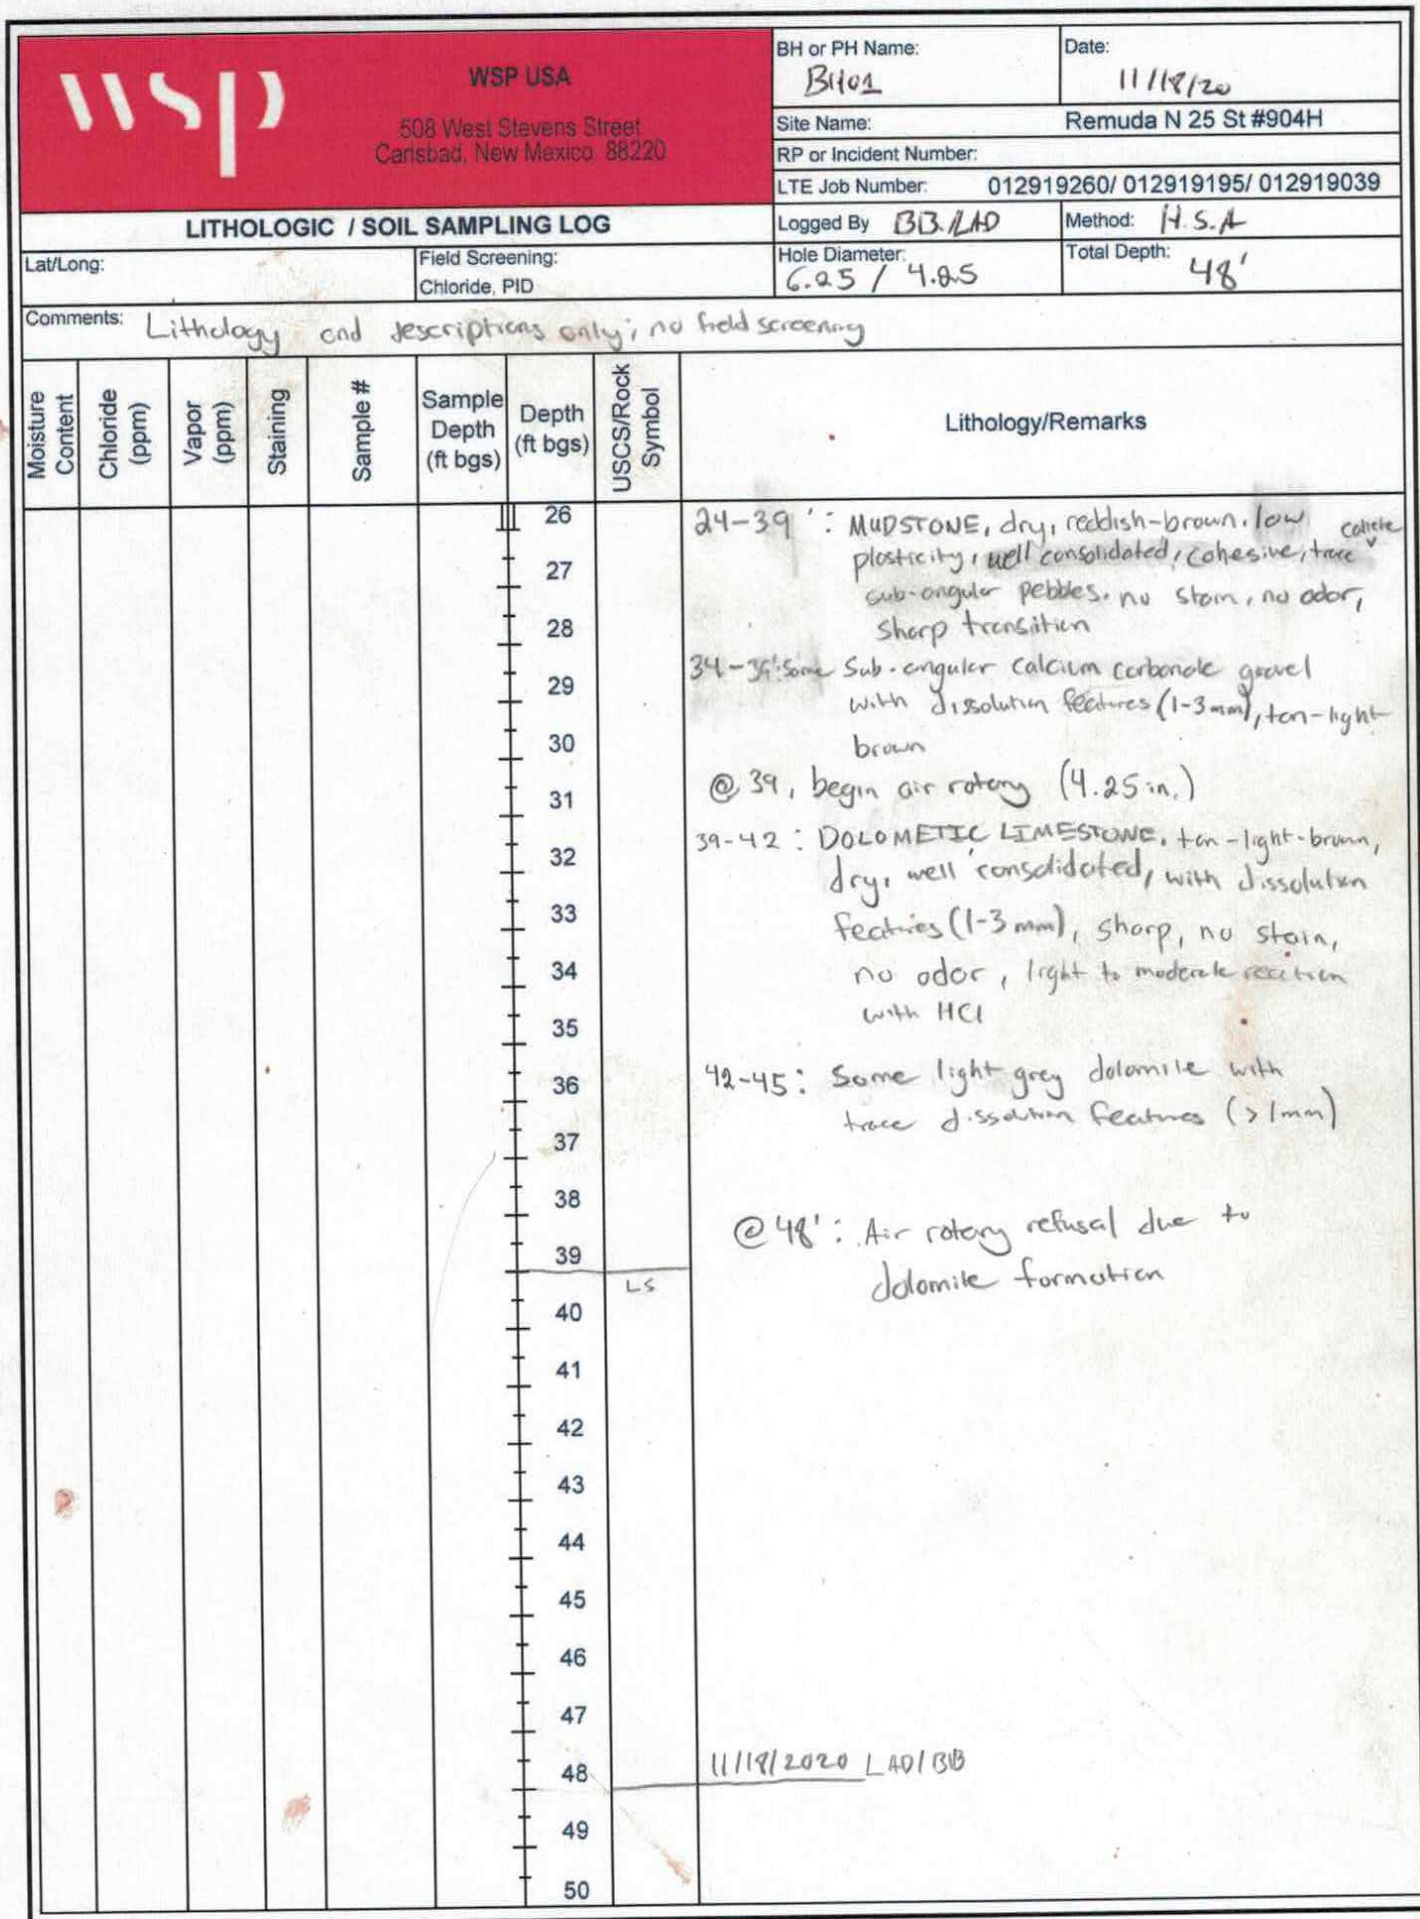 wsp
WSP USA
508 West Stevens Street
Carlsbad, New Mexico 88220
BH or PH Name:
BH01
Date:
11/18/20
Site Name:
Remuda N 25 St #904H
RP or Incident Number:
LTE Job Number: 012919260/ 012919195/ 012919039
LITHOLOGIC / SOIL SAMPLING LOG
Logged By BB/LAD
Method: H.S.A
Lat/Long:
Field Screening:
Chloride, PID
Hole Diameter:
6.25 / 4.25
Total Depth:
48'
Comments: Lithology and descriptions only; no field screening
Moisture Content
Chloride (ppm)
Vapor (ppm)
Staining
Sample #
Sample Depth (ft bgs)
Depth (ft bgs)
USCS/Rock Symbol
Lithology/Remarks
26
27
28
29
30
31
32
33
34
35
36
37
38
39
LS
40
41
42
43
44
45
46
47
48
49
50
24-39': MUDSTONE, dry, reddish-brown, low
plasticity, well consolidated, cohesive, trace caliche
sub-angular pebbles, no stain, no odor,
sharp transition
34-39': Some Sub-angular calcium carbonate gravel
with dissolution features (1-3 mm), tan-light
brown
@ 39, begin air rotary (4.25 in.)
39-42: DOLOMETIC LIMESTONE, tan-light-brown,
dry, well consolidated, with dissolution
features (1-3 mm), sharp, no stain,
no odor, light to moderate reaction
with HCl
42-45: Some light grey dolomite with
trace dissolution features (>1mm)
@ 48': Air rotary refusal due to
dolomite formation
11/18/2020 LAD/BB